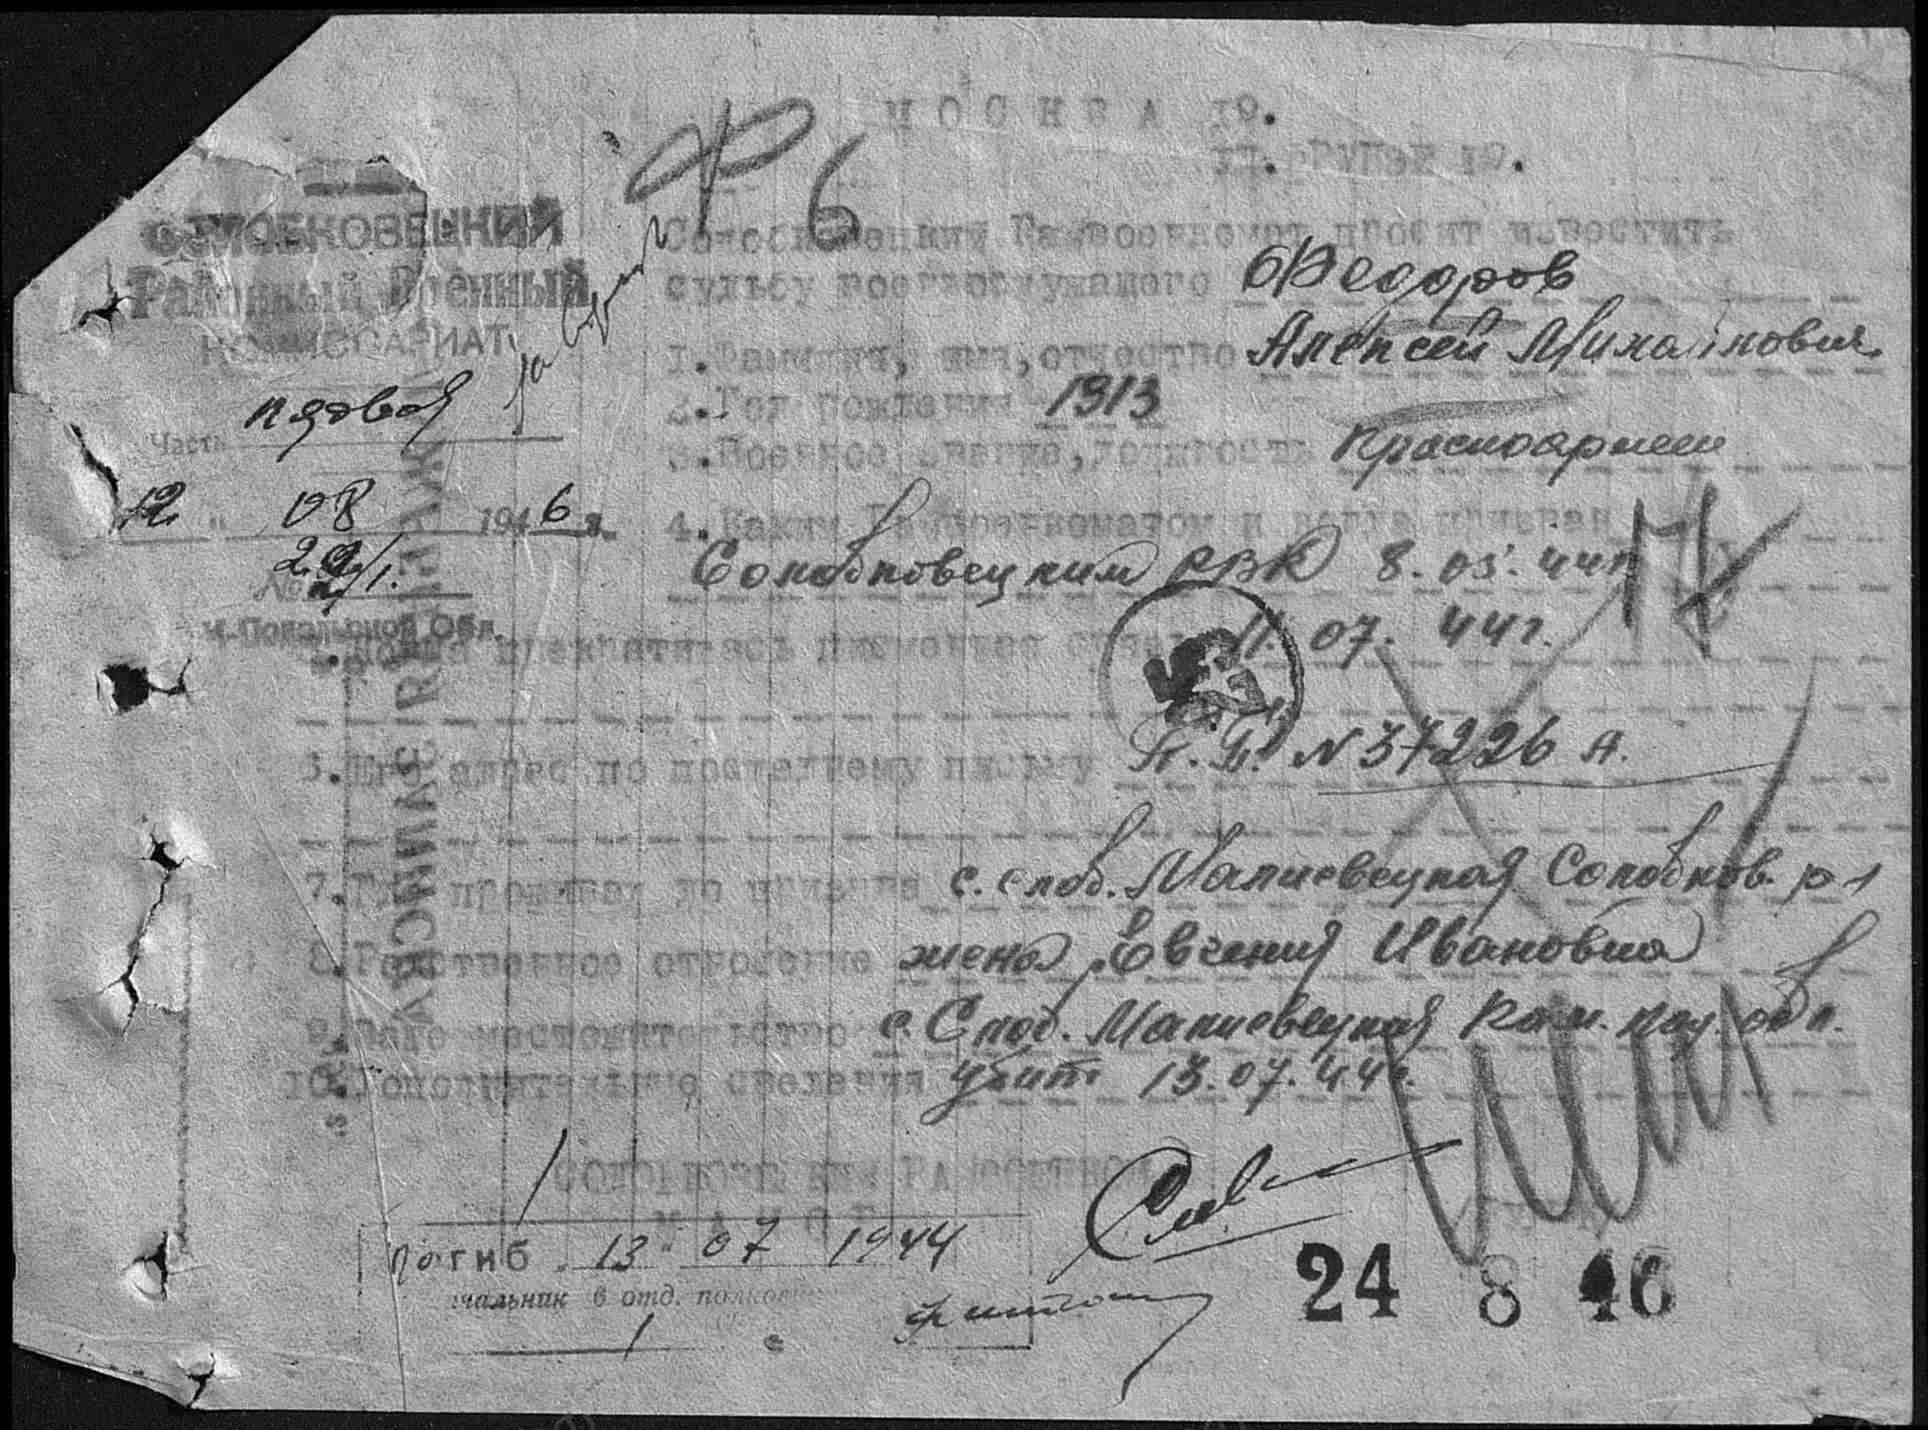 МОСКВА 19.
Ф 6
СОЛОБКОВЕЦКИЙ
Районный Военный
КОМИССАРИАТ
Часть
12 " 08 1946 г.
№
К-Подольской Обл.
Солобковецкий Райвоенкомат просит известить
судьбу военнослужащего Федоров
1.Фамилия, имя, отчество Алексей Михайлович
2.Год рождения 1913
3.Военное звание, должность Красноармеец
4.Каким Райвоенкоматом и когда призван
Солобковецким РВК 8.03.44г
Когда прекратилась письменная связь 11.07.44г.
6. адрес по последнему письму П.П. N 37226 А.
7.Где проживал до призыва с. слоб. Малиевецкая Солобков. р-н
8.Родственное отношение жена Евгения Ивановна
9. местожительство с. Слоб. Малиевецкая Кам. под. обл.
10.Дополнительные сведения убит 13.07.44г.
СОЛОБКОВЕЦКИЙ РАЙВОЕНКОМ
МАЙОР
Погиб 13 " 07 1944
чальник 6 отд. полковник
24 8 46